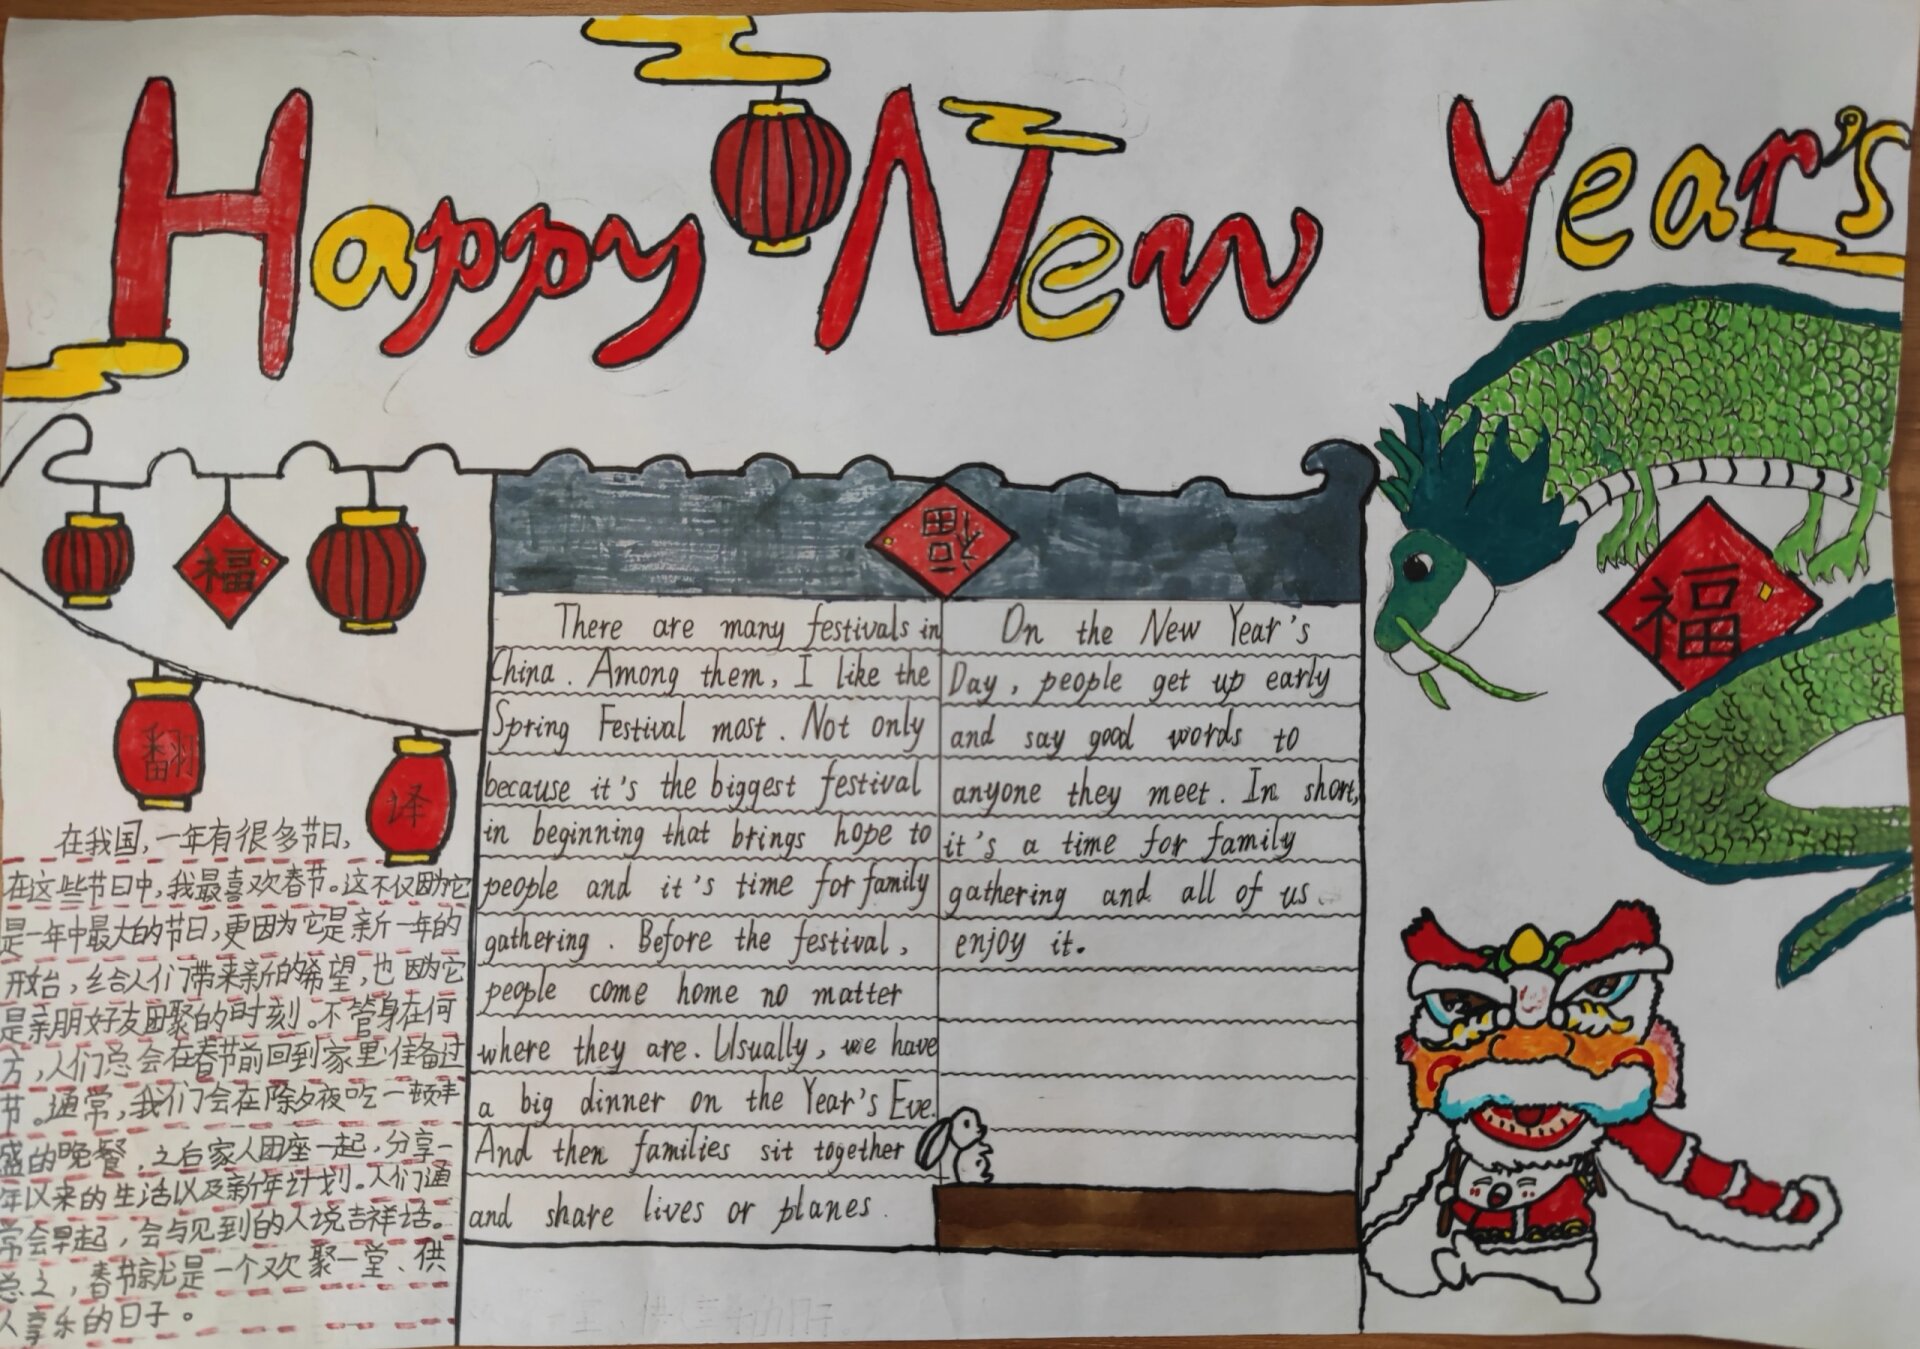 Happy New Year's
福
福
福
翻
译
在我国,一年有很多节日,
在这些节日中,我最喜欢春节。这不仅因为它
是一年中最大的节日,更因为它是新一年的
开始,给人们带来新的希望,也因为它
是亲朋好友团聚的时刻。不管身在何
方,人们总会在春节前回到家里准备过
节。通常,我们会在除夕夜吃一顿丰
盛的晚餐,之后家人团座一起,分享一
年以来的生活以及新年计划。人们通
常会早起,会与见到的人说吉祥话。
总之,春节就是一个欢聚一堂、供
人享乐的日子。
There are many festivals in
China. Among them, I like the
Spring Festival most. Not only
because it's the biggest festival
in beginning that brings hope to
people and it's time for family
gathering. Before the festival,
people come home no matter
where they are. Usually, we have
a big dinner on the Year's Eve.
And then families sit together
and share lives or planes.
On the New Year's
Day, people get up early
and say good words to
anyone they meet. In short,
it's a time for family
gathering and all of us
enjoy it.